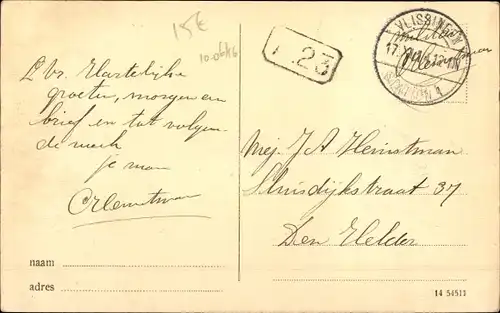 15€
10.06k6
L Vr. Hartelijke
groeten, morgen een
brief en tot volgen-
de week
je man
naam
adres
P.23
VLISSINGEN
militair
17.X
STATION 1
Mej. J A Heinstman
Sluisdijkstraat 37
Den Helder
14 54511